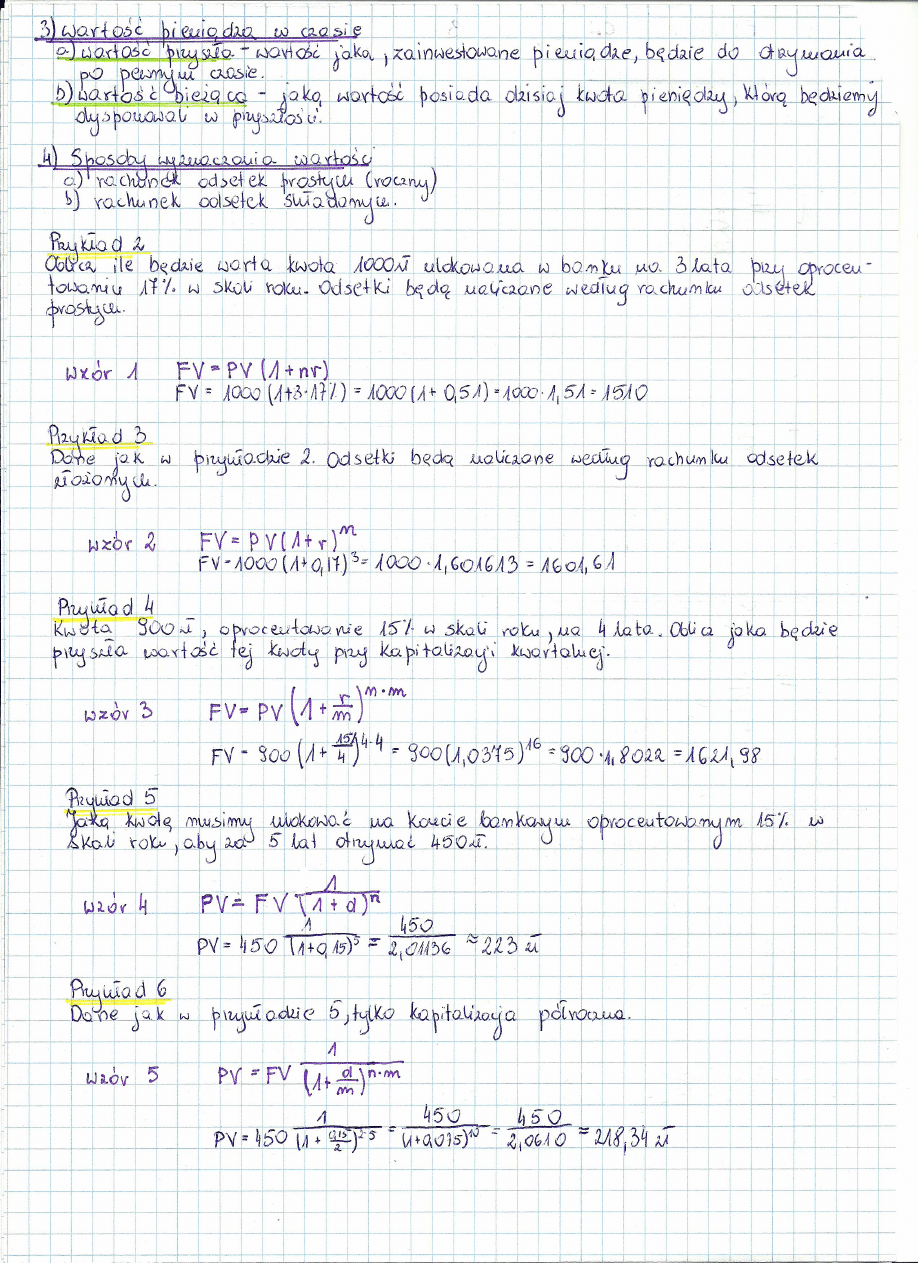 3) Wartość pieniądza w czasie
a) wartość przyszła - wartość jaką, zainwestowane pieniądze, będzie do otrzymania
po pewnym czasie.
b) wartość bieżąca - jaką wartość posiada dzisiaj kwota pieniędzy, którą będziemy
dysponować w przyszłości.
4) Sposoby wyznaczania wartości
a) rachunek odsetek prostych (roczny)
b) rachunek odsetek składanych.
Przykład 2
Oblicz ile będzie warta kwota 1000zł ulokowana w banku na 3 lata przy oprocen-
towaniu 17% w skali roku. Odsetki będą naliczane według rachunku odsetek
prostych.
Wzór 1 FV = PV (1+nr)
FV = 1000 (1+3·17%) = 1000 (1+0,51) = 1000·1,51 = 1510
Przykład 3
Dane jak w przykładzie 2. Odsetki będą naliczane według rachunku odsetek
złożonych.
wzór 2 FV = PV(1+r)^n
FV = 1000 (1+0,17)^3 = 1000·1,601613 = 1601,61
Przykład 4
Kwota 900zł, oprocentowanie 15% w skali roku, na 4 lata. Oblicz jaka będzie
przyszła wartość tej kwoty przy kapitalizacji kwartalnej.
wzór 3 FV = PV (1+r/m)^n·m
FV = 900 (1+15%/4)^4·4 = 900(1,0375)^16 = 900·1,8022 = 1621,98
Przykład 5
Jaką kwotę musimy ulokować na koncie bankowym oprocentowanym 15% w
skali roku, aby za 5 lat otrzymać 450zł.
wzór 4 PV = FV 1/(1+d)^n
PV = 450 1/(1+0,15)^5 = 450/2,01136 ≈ 223 zł
Przykład 6
Dane jak w przykładzie 5, tylko kapitalizacja półroczna.
wzór 5 PV = FV 1/(1+d/m)^n·m
PV = 450 1/(1+0,15/2)^2·5 = 450/(1+0,075)^10 = 450/2,0610 = 218,34 zł